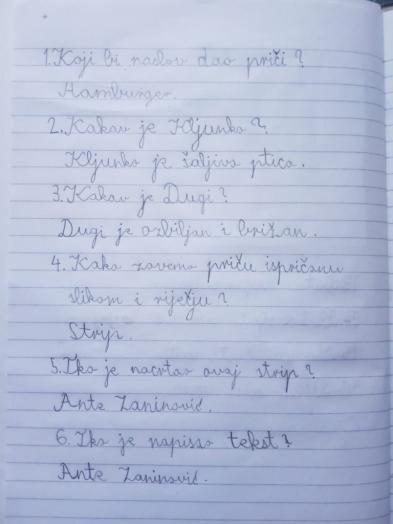 1. Koji bi naslov dao priči?
Hamburger.
2. Kakav je Kljunko?
Kljunko je šaljiva ptica.
3. Kakav je Dugi?
Dugi je ozbiljan i brižan.
4. Kako zovemo priču ispričanu
slikom i riječju?
Strip.
5. Tko je nacrtao ovaj strip?
Ante Zaninović.
6. Tko je napisao tekst?
Ante Zaninović.